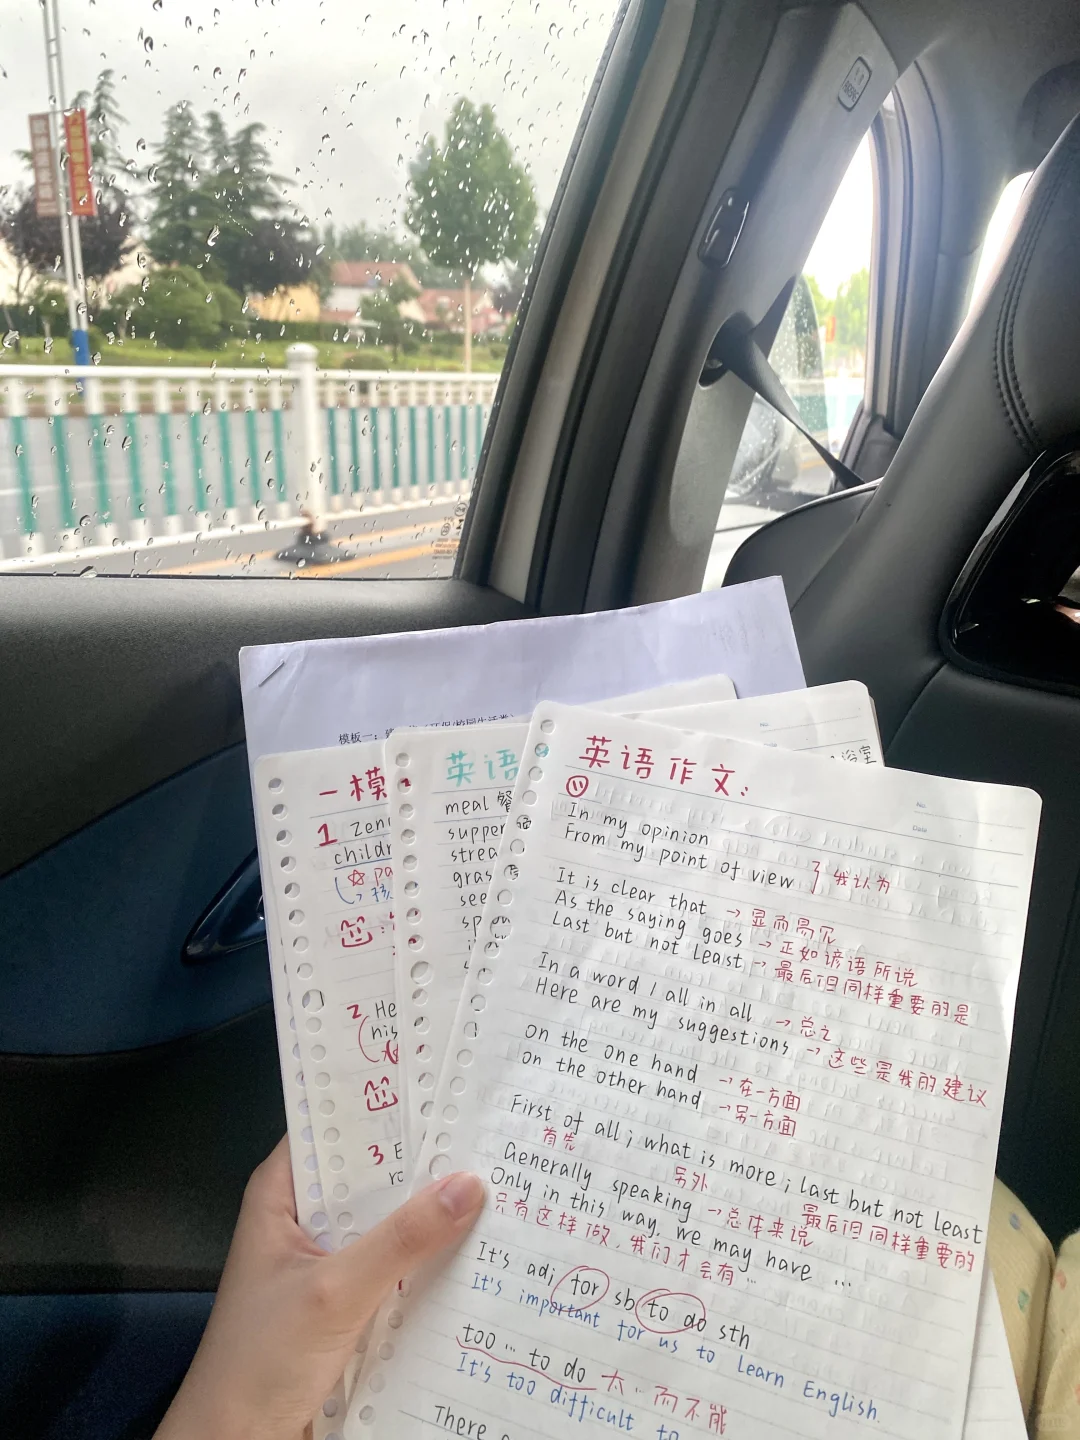 模板一：
一模
1 Zen
childr
☆ pa
2 He
his
3 E
ro
英语
meal 餐
supper
strea
gras
see
sp
浴室
英语作文：
No.
Date
In my opinion
From my point of view } 我认为
It is clear that → 显而易见
As the saying goes → 正如谚语所说
Last but not least → 最后但同样重要的是
In a word / all in all → 总之
Here are my suggestions → 这些是我的建议
On the one hand → 在一方面
On the other hand → 另一方面
First of all ; what is more ; last but not least
首先 另外 最后但同样重要的
Generally speaking → 总体来说
Only in this way, we may have ...
只有这样做，我们才会有 ...
It's adj for sb to do sth
It's important for us to learn English.
too ... to do 太 ... 而不能
It's too difficult to
There